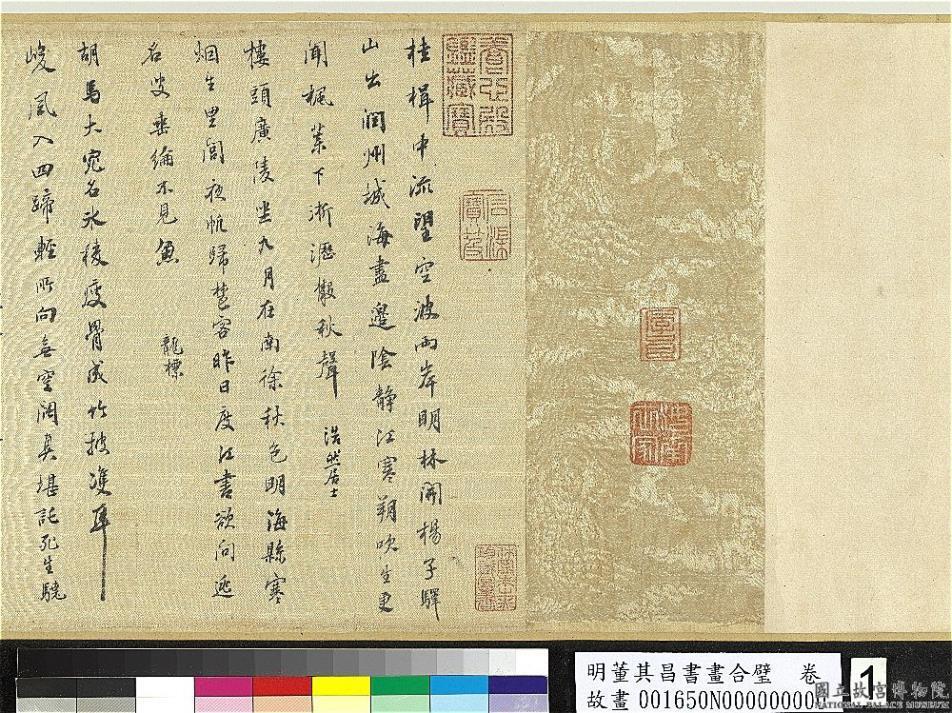 養心殿鑑藏寶
石渠寶笈
桂楫中流望空波兩岸明林開楊子驛
山出潤州城海盡邊陰靜江寒朔吹生更
聞楓葉下淅瀝散秋聲 浩然居士
樓頭廣陵近九月在南徐秋色明海縣寒
烟生里閭夜帆歸楚客昨日度江書欲向逃
名叟垂綸不見魚 龍標
胡馬大宛名氷稜瘦骨成竹披雙耳
峻風入四蹄輕所向無空闊真堪託死生驍
明董其昌書畫合璧 卷
故畫 001650N00000000
1
國立故宮博物院
NATIONAL PALACE MUSEUM